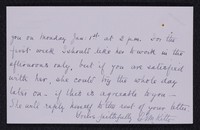 you on Monday Jan: 1st at 2 p.m. For the
first week I should like her to work in the
afternoons only, but if you are satisfied
with her, she could try the whole day
later on - if this is agreeable to you -
She will reply herself to the rest of your letter
Yours faithfully